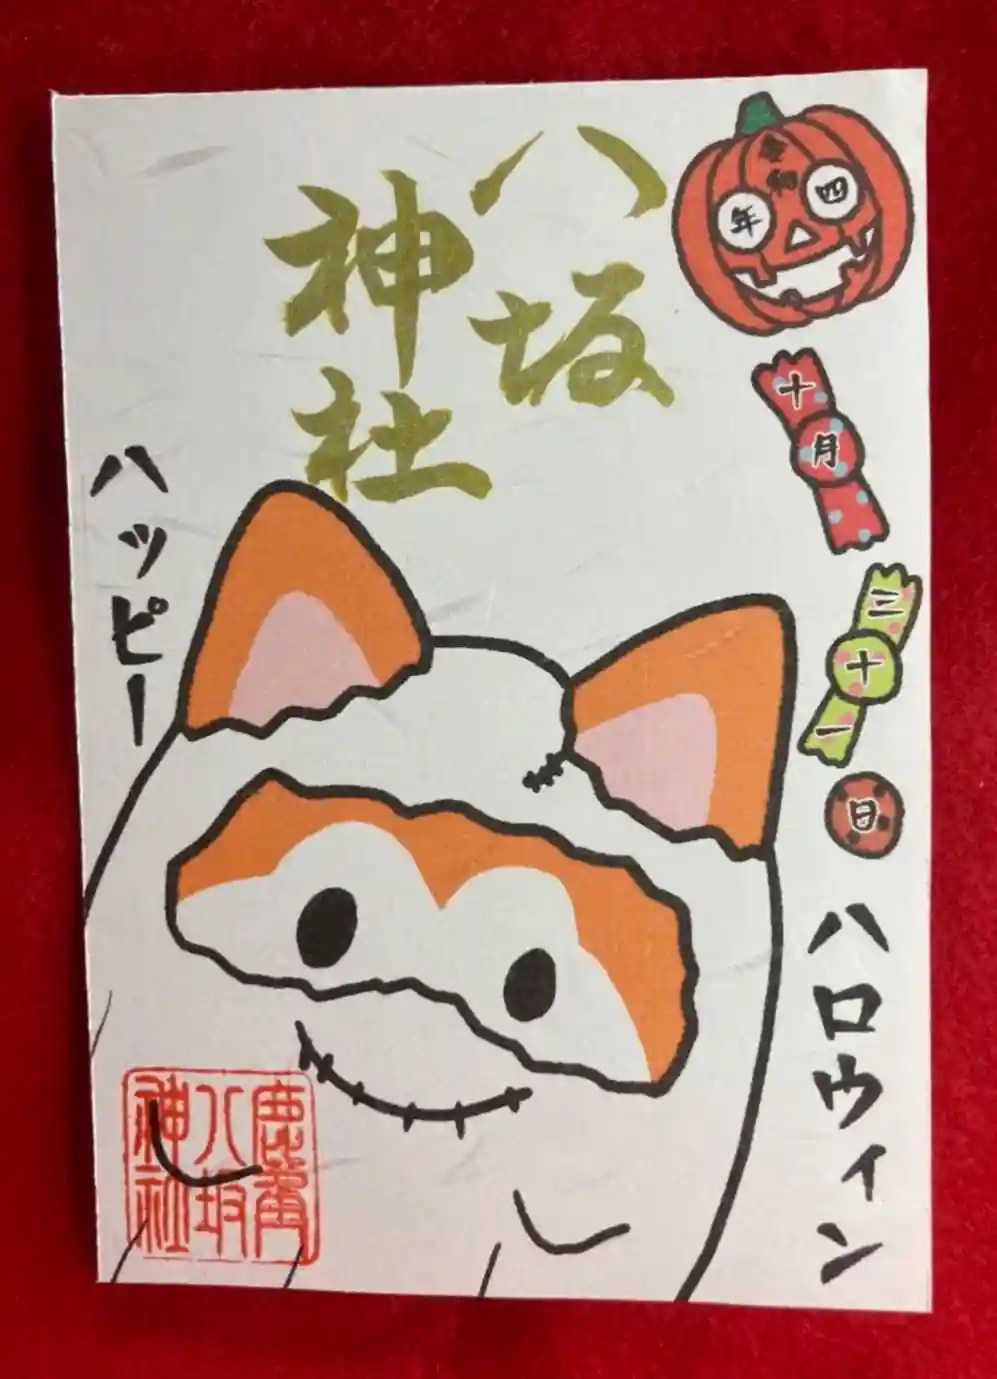 令和四年
十月
三十一
日
八坂
神社
ハッピー
ハロウィン
鹿角
八坂
神社